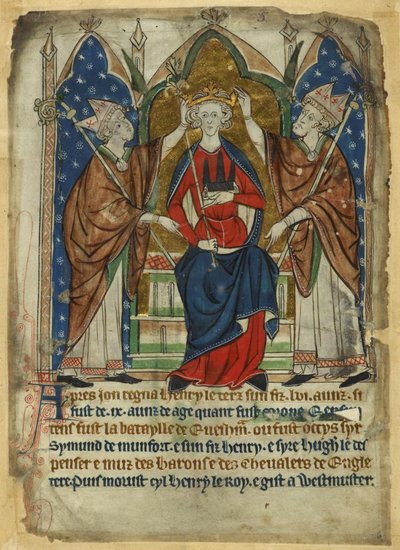 Apres Jon regna Henry le terz sun fiz .lvi. aunz. si
fust de .ix. aunz de age quant fust
tens fust la bataylle de ou fust occys syr
Symund de munfort. e sun fiz Henry. e syre Hugh le des
penser e muz des barons e des chevalers de Engle
tere. Puis morust cyl Henry le Roy. e gist a Westmuster.